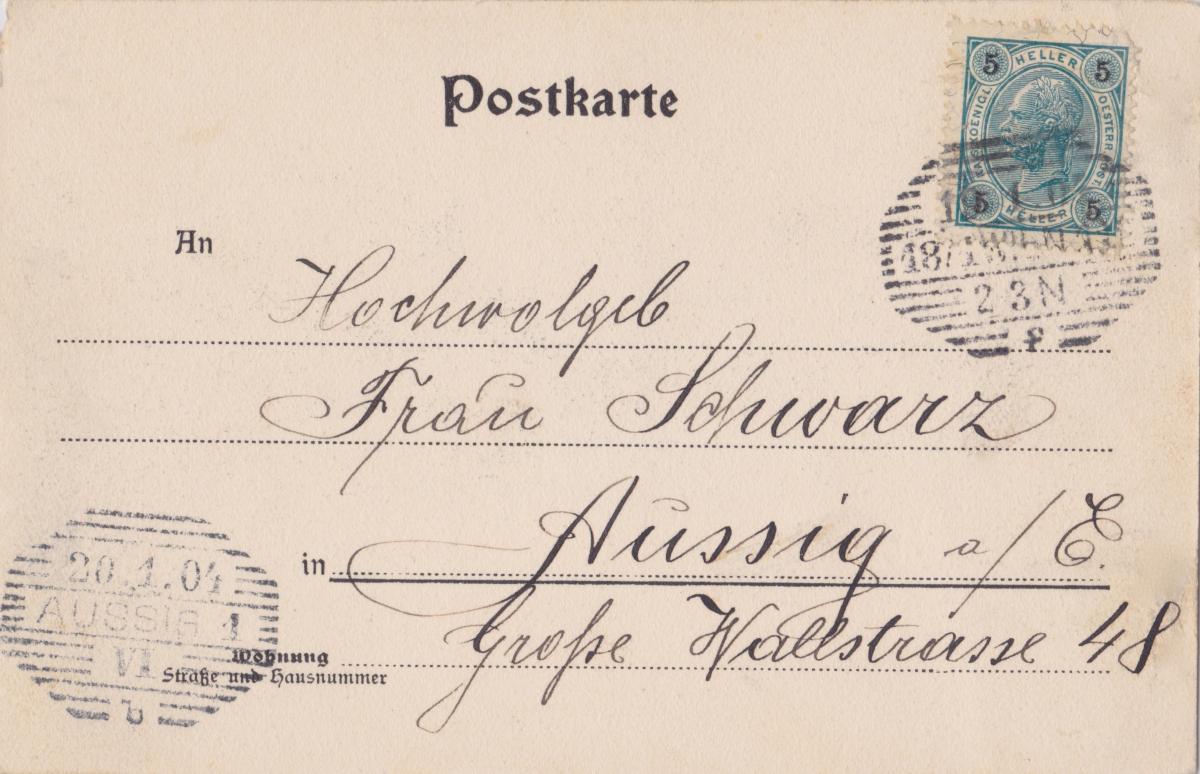 Postkarte
5 HELLER 5
KAIS. KOENIGL. OESTERR. POST.
5 HELLER 5
An
Hochwolgeb
18/1 WIEN
2-3N
Frau Schwarz
in Aussig a/E.
Große Wallstrasse 48
Wohnung
Straße und Hausnummer
20.1.04
AUSSIG 1
VI
b